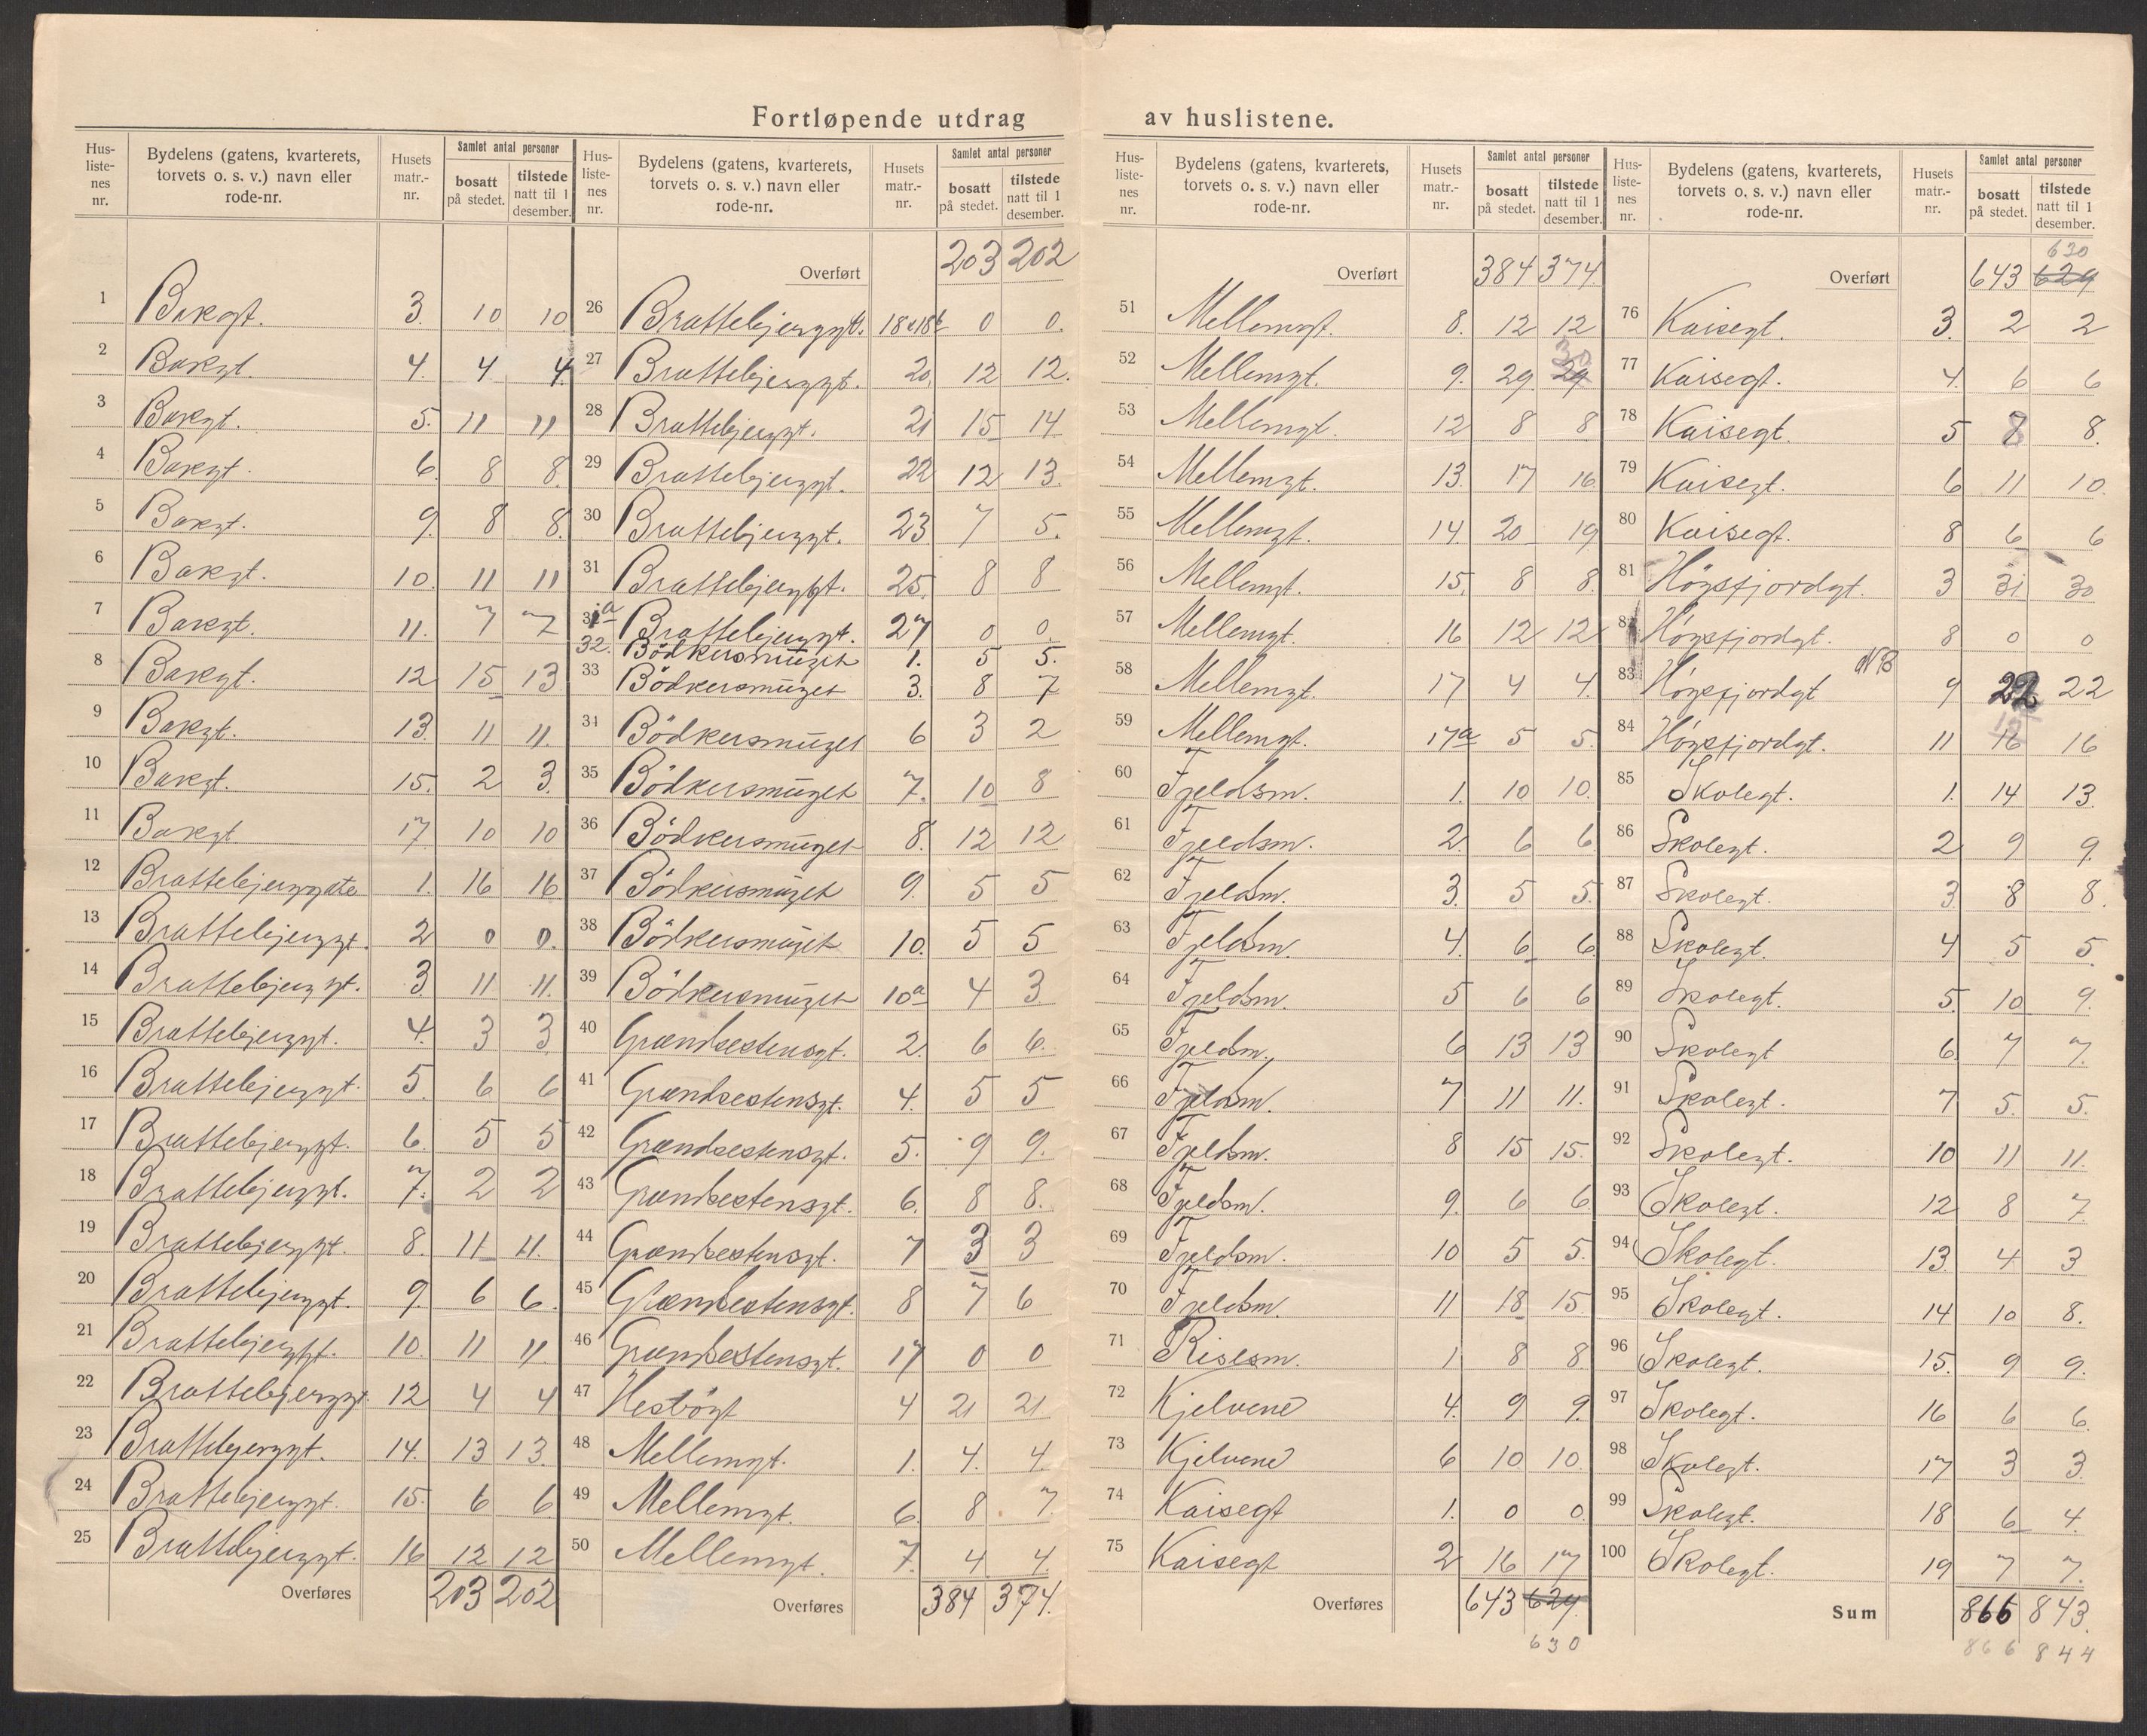 Fortløpende utdrag av huslistene.
Hus-liste-nes nr. | Bydelens (gatens, kvarterets, torvets o. s. v.) navn eller rode-nr. | Husets matr.-nr. | Samlet antal personer: bosatt på stedet. | tilstede natt til 1 desember.
1 Bakgt. 3. 10 10
2 Bakgt. 4. 4 4
3 Bakgt. 5. 11 11
4 Bakgt. 6. 8 8.
5 Bakgt. 9. 8 8.
6 Bakgt. 10. 11 11
7 Bakgt. 11. 7 7
8 Bakgt. 12 15 13
9 Bakgt. 13. 11 11.
10 Bakgt. 15. 2 3.
11 Bakgt 17. 10 10
12 Brattebjerggate 1. 16 16
13 Brattebjerggt. 2 0 0.
14 Brattebjerggt. 3. 11 11.
15 Brattebjerggt. 4. 3 3
16 Brattebjerggt. 5. 6 6
17 Brattebjerggt. 6. 5 5
18 Brattebjerggt. 7. 2 2
19 Brattebjerggt. 8. 11 11.
20 Brattebjerggt. 9. 6 6.
21 Brattebjerggt. 10. 11 11.
22 Brattebjerggt. 12 4 4
23 Brattebjerggt. 14. 13 13.
24 Brattebjerggt. 15. 6 6
25 Brattebjerggt. 16 12 12
Overføres 203 202
Hus-liste-nes nr. | Bydelens (gatens, kvarterets, torvets o. s. v.) navn eller rode-nr. | Husets matr.-nr. | Samlet antal personer: bosatt på stedet. | tilstede natt til 1 desember.
Overført 203 202
26 Brattebjerggt. 18 0 0.
27 Brattebjerggt. 20. 12 12.
28 Brattebjerggt. 21 15 14
29 Brattebjerggt. 22 12 13.
30 Brattebjerggt. 23 7 5.
31 Brattebjerggt. 25. 8 8
31a Brattebjerggt. 27 0 0.
32. Bödkersmüget 1. 5 5.
33 Bödkersmüget 3. 8 7
34 Bödkersmüget 6 3 2
35 Bödkersmüget 7. 10 8
36 Bödkersmüget 8. 12 12
37 Bödkersmüget 9. 5 5
38 Bödkersmüget 10. 5 5
39 Bödkersmüget 10a 4 3
40 Grændsestensgt. 2. 6 6.
41 Grændsestensgt. 4. 5 5
42 Grændsestensgt. 5. 9 9.
43 Grændsestensgt. 6. 8 8.
44 Grændsestensgt. 7 3 3
45 Grændsestensgt. 8 7 6
46 Grændsestensgt. 17 0 0
47 Hesbögt 4 21 21
48 Mellemgt. 1. 4. 4.
49 Mellemgt. 6. 8 7
50 Mellemgt. 7. 4 4.
Overføres 384 374.
Hus-liste-nes nr. | Bydelens (gatens, kvarterets, torvets o. s. v.) navn eller rode-nr. | Husets matr.-nr. | Samlet antal personer: bosatt på stedet. | tilstede natt til 1 desember.
Overført 384 374.
51 Mellemgt. 8. 12 12
52 Mellemgt. 9. 29 29 30
53 Mellemgt. 12 8 8
54 Mellemgt. 13. 17 16
55 Mellemgt. 14. 20 19
56 Mellemgt. 15. 8 8.
57 Mellemgt. 16 12 12
58 Mellemgt. 17 4 4.
59 Mellemgt. 17a 5 5.
60 Fjeldsm. 1. 10 10.
61 Fjeldsm. 2. 6 6.
62 Fjeldsm. 3. 5 5.
63 Fjeldsm. 4. 6 6.
64 Fjeldsm. 5 6 6
65 Fjeldsm. 6 13 13
66 Fjeldsm. 7 11 11.
67 Fjeldsm. 8 15 15.
68 Fjeldsm. 9. 6 6.
69 Fjeldsm. 10 5 5.
70 Fjeldsm. 11 18 15
71 Risesm. 1 8 8
72 Kjelvene 4. 9 9.
73 Kjelvene 6 10 10.
74 Kaisegt 1. 0 0
75 Kaisegt 2 16 17
Overføres 643 629.
630
Hus-liste-nes nr. | Bydelens (gatens, kvarterets, torvets o. s. v.) navn eller rode-nr. | Husets matr.-nr. | Samlet antal personer: bosatt på stedet. | tilstede natt til 1 desember.
630
Overført 643 629
76 Kaisegt. 3. 2 2
77 Kaisegt. 4. 6 6
78 Kaisegt. 5 8 8.
79 Kaisegt. 6 11 10.
80 Kaisegt. 8 6 6
81 Högsfjordgt. 3 31 30
82 Högsfjordgt. 8 0 0
83 Högsfjordgt NB 9 22 22
84 Högsfjordgt. 11 16 16
85 Skolegt. 1. 14 13.
86 Skolegt. 2 9 9.
87 Skolegt. 3 8 8.
88 Skolegt. 4 5 5.
89 Skolegt. 5. 10 9.
90 Skolegt 6. 7 7.
91 Skolegt. 7 5. 5.
92 Skolegt. 10 11 11.
93 Skolegt. 12 8 7.
94 Skolegt. 13 4 3
95 Skolegt. 14 10 8.
96 Skolegt. 15. 9 9.
97 Skolegt. 16 6 6.
98 Skolegt. 17 3 3
99 Skolegt. 18 6 4.
100 Skolegt. 19 7 7.
Sum 866 843.
866 844